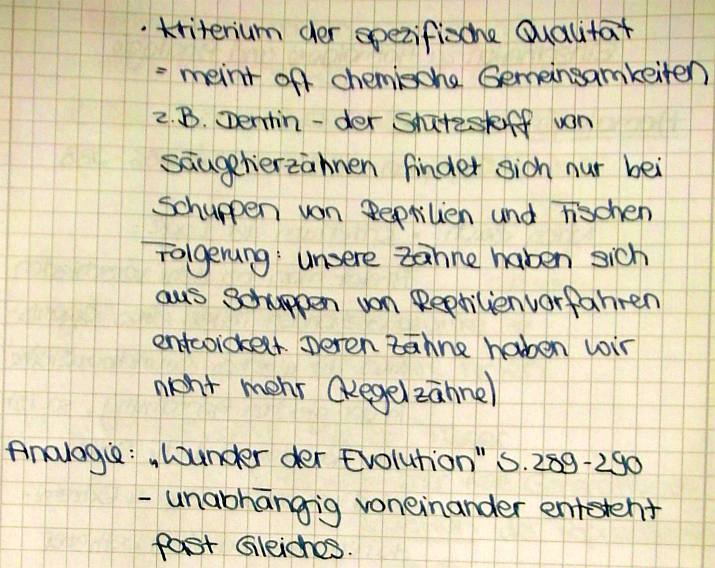 · Kriterium der spezifische Qualität
= meint oft chemische Gemeinsamkeiten
z.B. Dentin - der Stützstoff von
Säugetierzähnen findet sich nur bei
Schuppen von Reptilien und Fischen
Folgerung: unsere Zähne haben sich
aus Schuppen von Reptilienvorfahren
entwickelt. Deren Zähne haben wir
nicht mehr (Kegelzähne)
Analogie: „Wunder der Evolution" S. 289-290
- unabhängig voneinander entsteht
fast Gleiches.